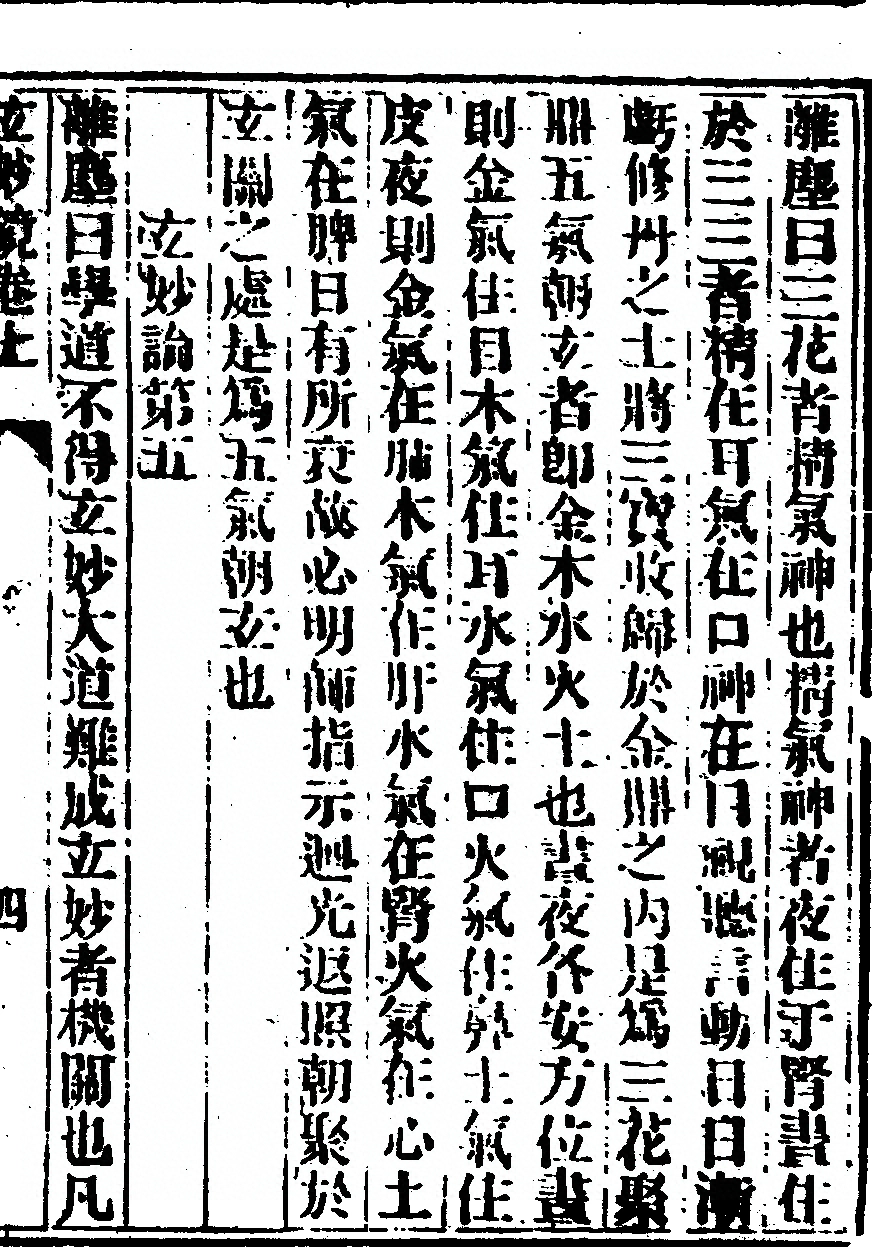 離塵曰三花者精氣神也精氣神者夜住于腎晝住
於三三者精在耳氣在口神在目視聽言動日日漸
虧修丹之士將三寶收歸於金鼎之內是爲三花聚
鼎五氣朝玄者卽金木水火土也晝夜各安方位晝
則金氣住目木氣住耳水氣住口火氣住鼻土氣住
皮夜則金氣在肺木氣在肝水氣在腎火氣在心土
氣在脾日有所衰故必明師指示迴光返照朝聚於
玄關之處是爲五氣朝玄也
玄妙論第五
離塵曰學道不得玄妙大道難成玄妙者機關也凡
玄妙鏡卷上
四